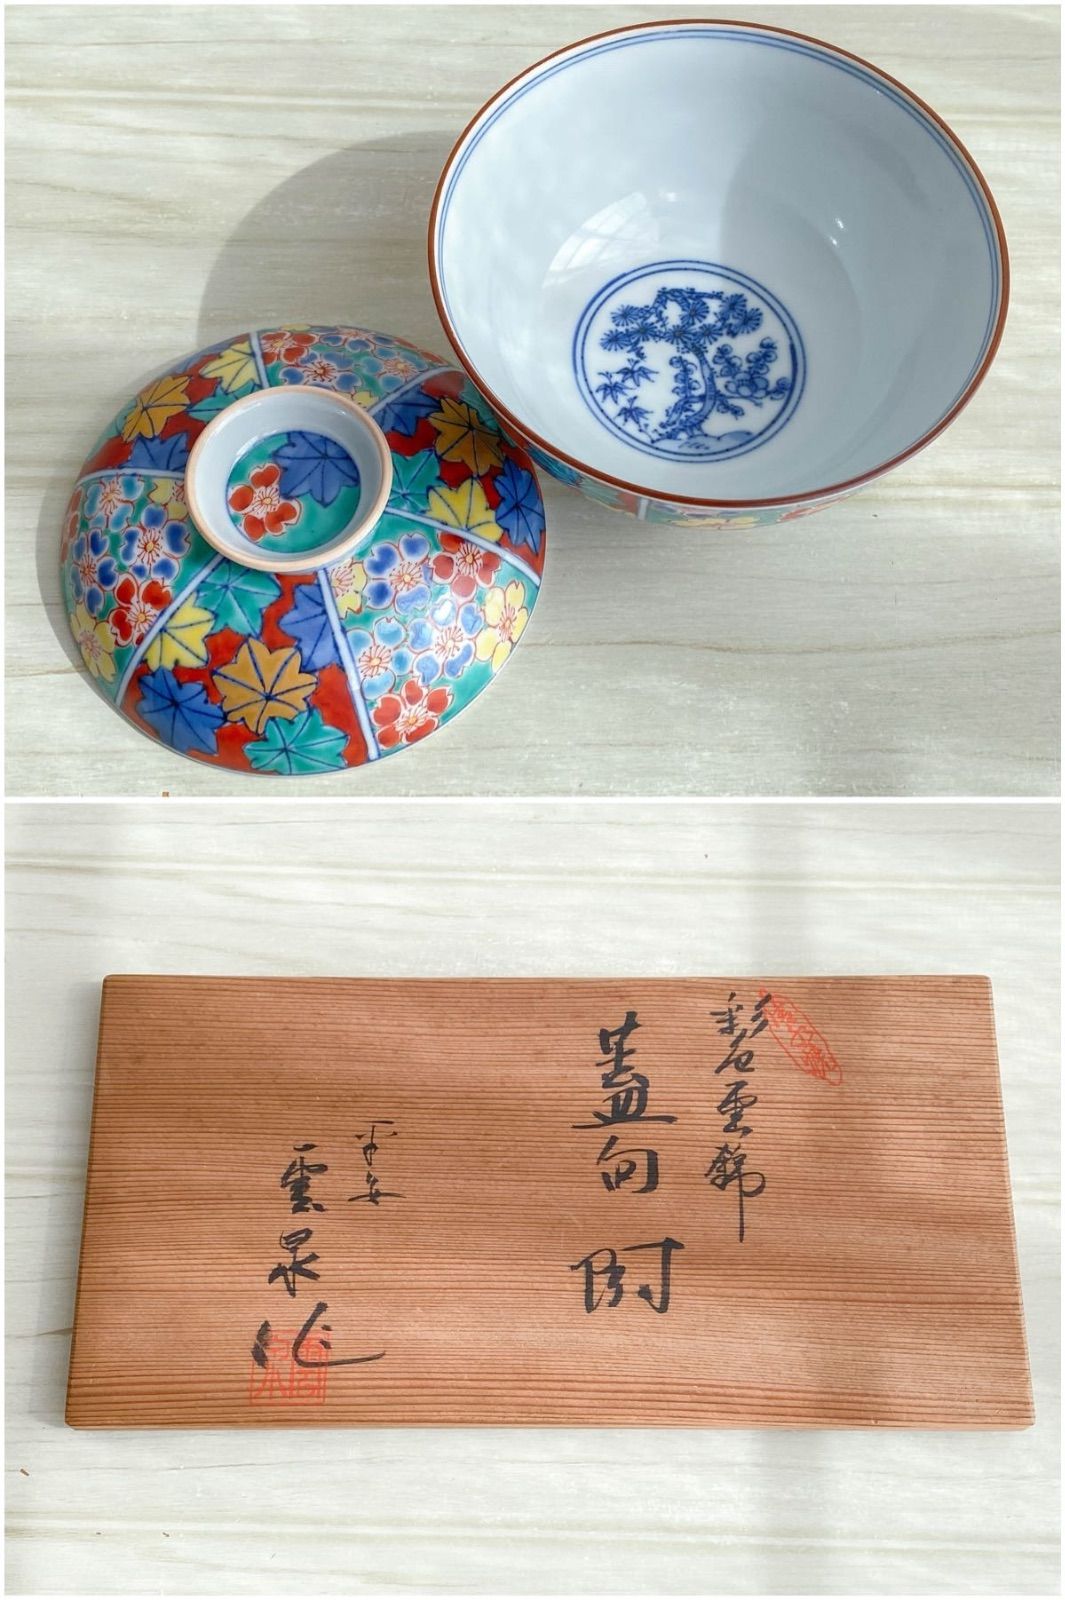 彩色雲錦
蓋向 付
平安
雲泉作